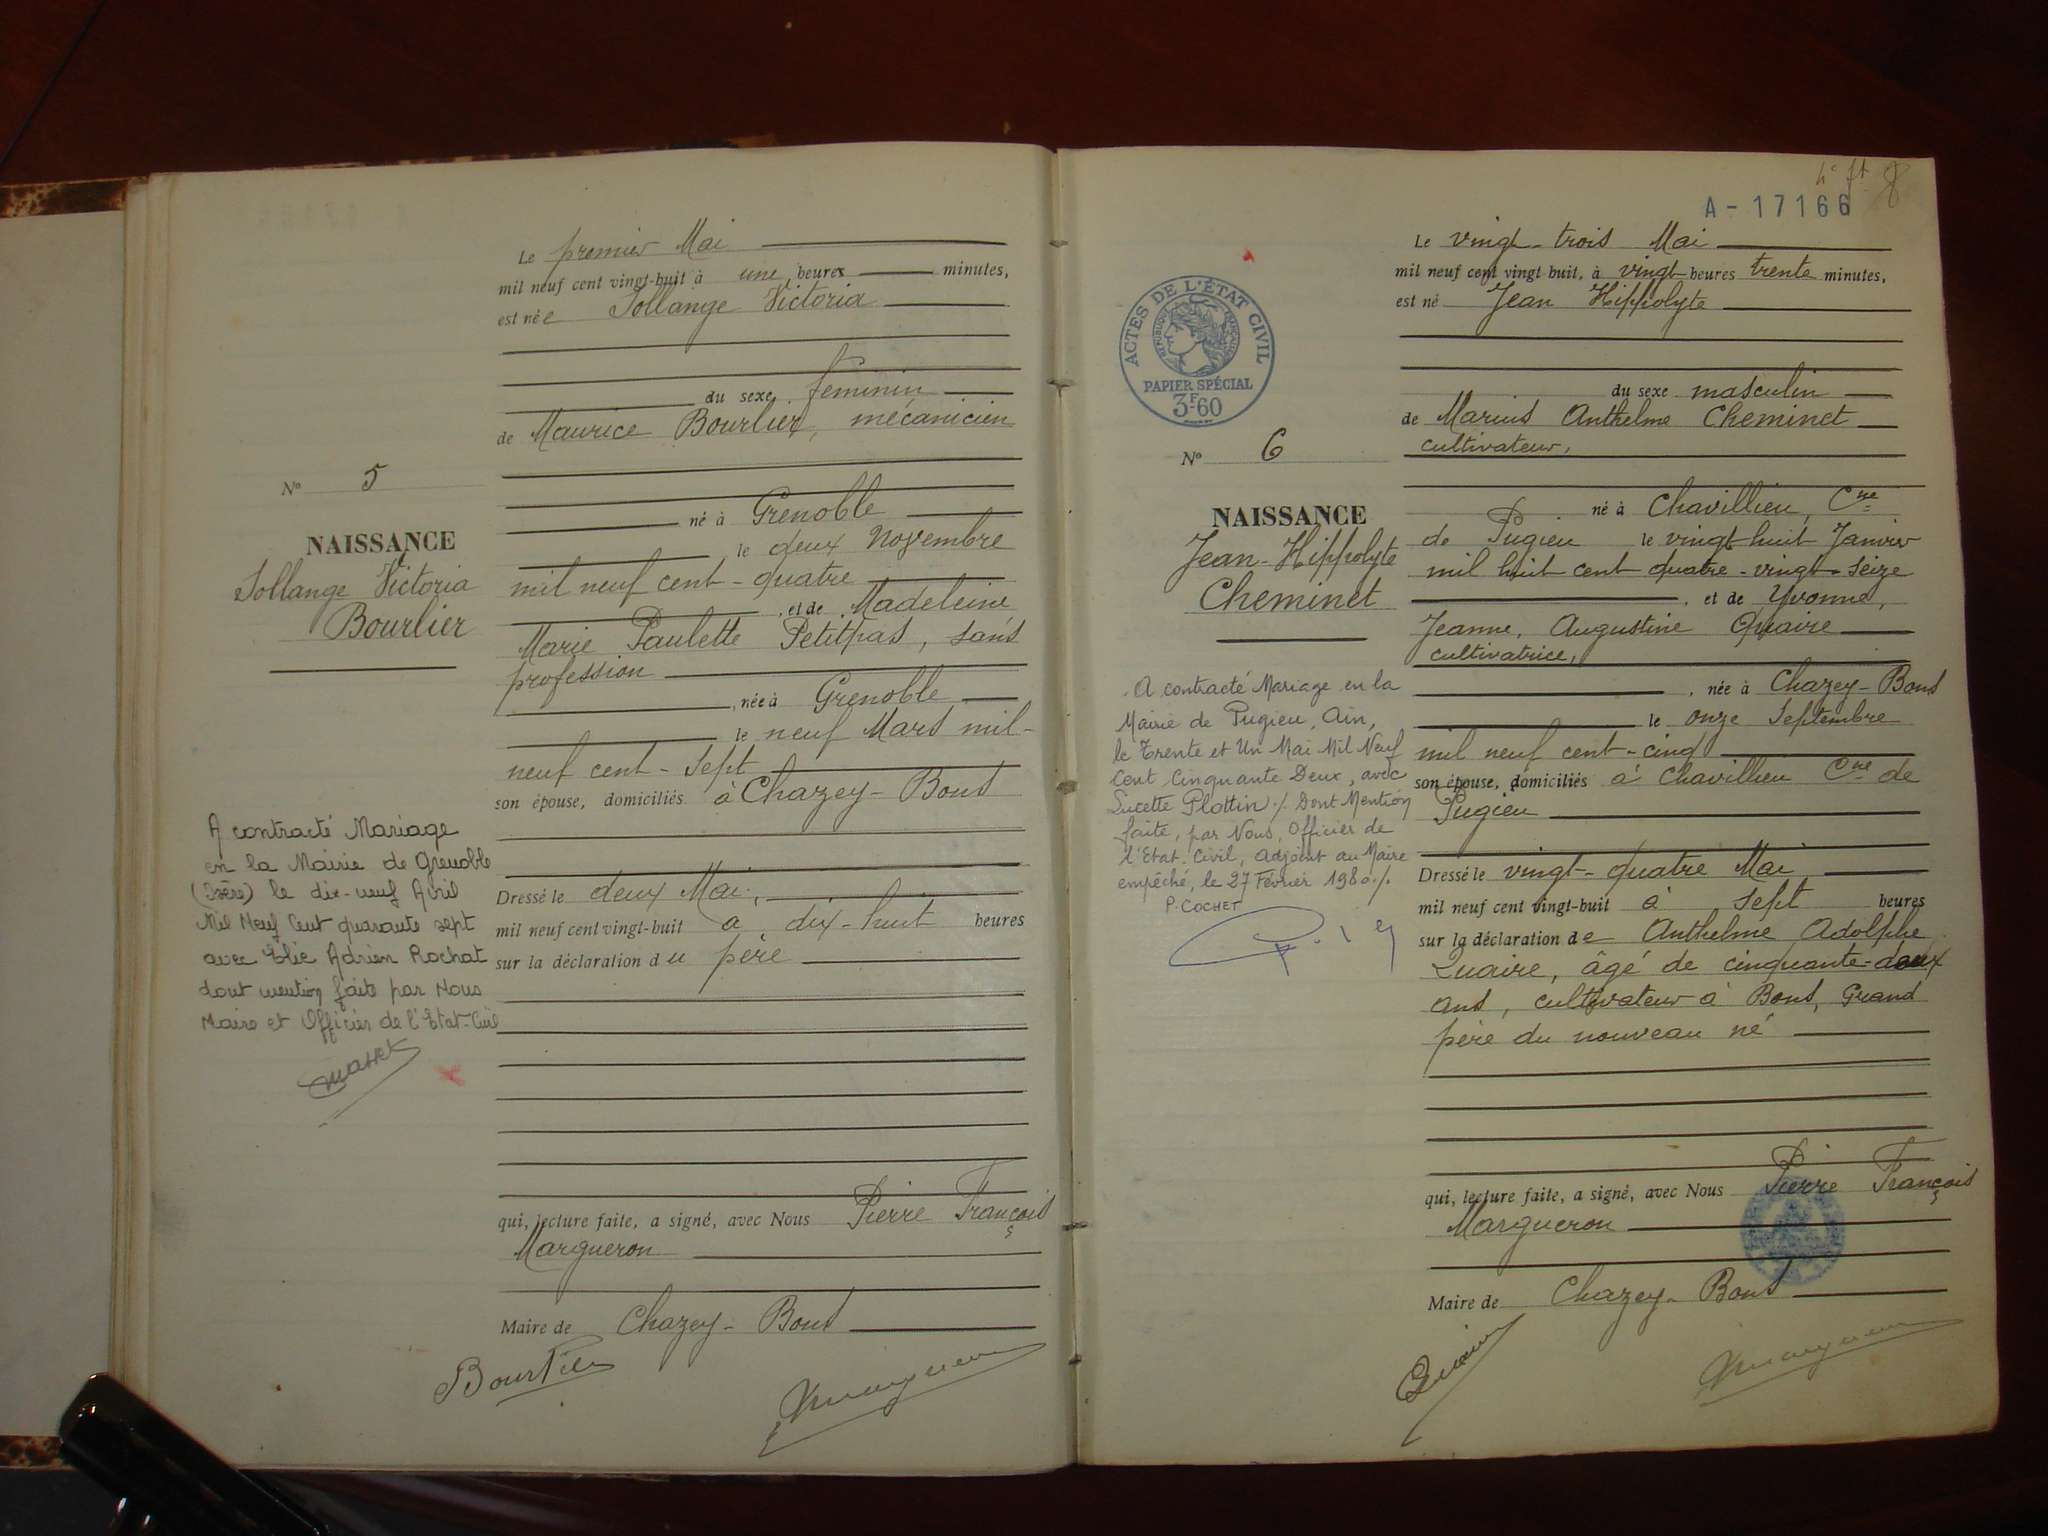 Le premier Mai
mil neuf cent vingt-huit à une heures minutes,
est née Sollange Victoria
du sexe féminin
de Maurice Bourlier, mécanicien
né à Grenoble
le deux Novembre
mil neuf cent-quatre
, et de Madeleine
Marie Paulette Petitpas, sans
profession
, née à Grenoble
le neuf Mars mil-
neuf cent-sept
son épouse, domiciliés à Chazey-Bons
Dressé le deux Mai,
mil neuf cent vingt-huit à dix-huit heures
sur la déclaration du père
qui, lecture faite, a signé, avec Nous Pierre François
Margueron
Maire de Chazey-Bons
Bourlier
Margueron
No 5
NAISSANCE
Sollange Victoria
Bourlier
A contracté Mariage
en la Mairie de Grenoble
(Isère) le dix-neuf Avril
Mil Neuf Cent quarante sept
avec Elie Adrien Rochat
dont mention faite par Nous
Maire et Officier de l'Etat-Civil
4e ft 8
A-17166
Le vingt-trois Mai
mil neuf cent vingt huit, à vingt heures trente minutes,
est né Jean Hippolyte
du sexe masculin
de Marius Anthelme Cheminet
cultivateur,
né à Chavillieu, Cne
de Pugieu le vingt huit Janvier
mil huit cent quatre-vingt-seize
, et de Yvonne,
Jeanne, Augustine Quaire
cultivatrice,
, née à Chazey-Bons
le onze Septembre
mil neuf cent-cinq
son épouse, domiciliés à Chavillieu Cne de
Pugieu
Dressé le vingt-quatre Mai
mil neuf cent vingt-huit à sept heures
sur la déclaration de Anthelme Adolphe
Quaire, âgé de cinquante-deux
ans, cultivateur à Bons, Grand
père du nouveau né
qui, lecture faite, a signé, avec Nous Pierre François
Margueron
Maire de Chazey-Bons
Quaire
Margueron
ACTES DE L'ÉTAT CIVIL
RÉPUBLIQUE FRANÇAISE
PAPIER SPÉCIAL
3F60
No 6
NAISSANCE
Jean-Hippolyte
Cheminet
A contracté Mariage en la
Mairie de Pugieu, Ain,
le Trente et Un Mai Mil Neuf
Cent Cinquante Deux, avec
Lucette Plottin ./. Dont Mention
faite, par Nous, Officier de
l'Etat-Civil, adjoint au Maire
empêché, le 27 Février 1980./.
P. COCHET